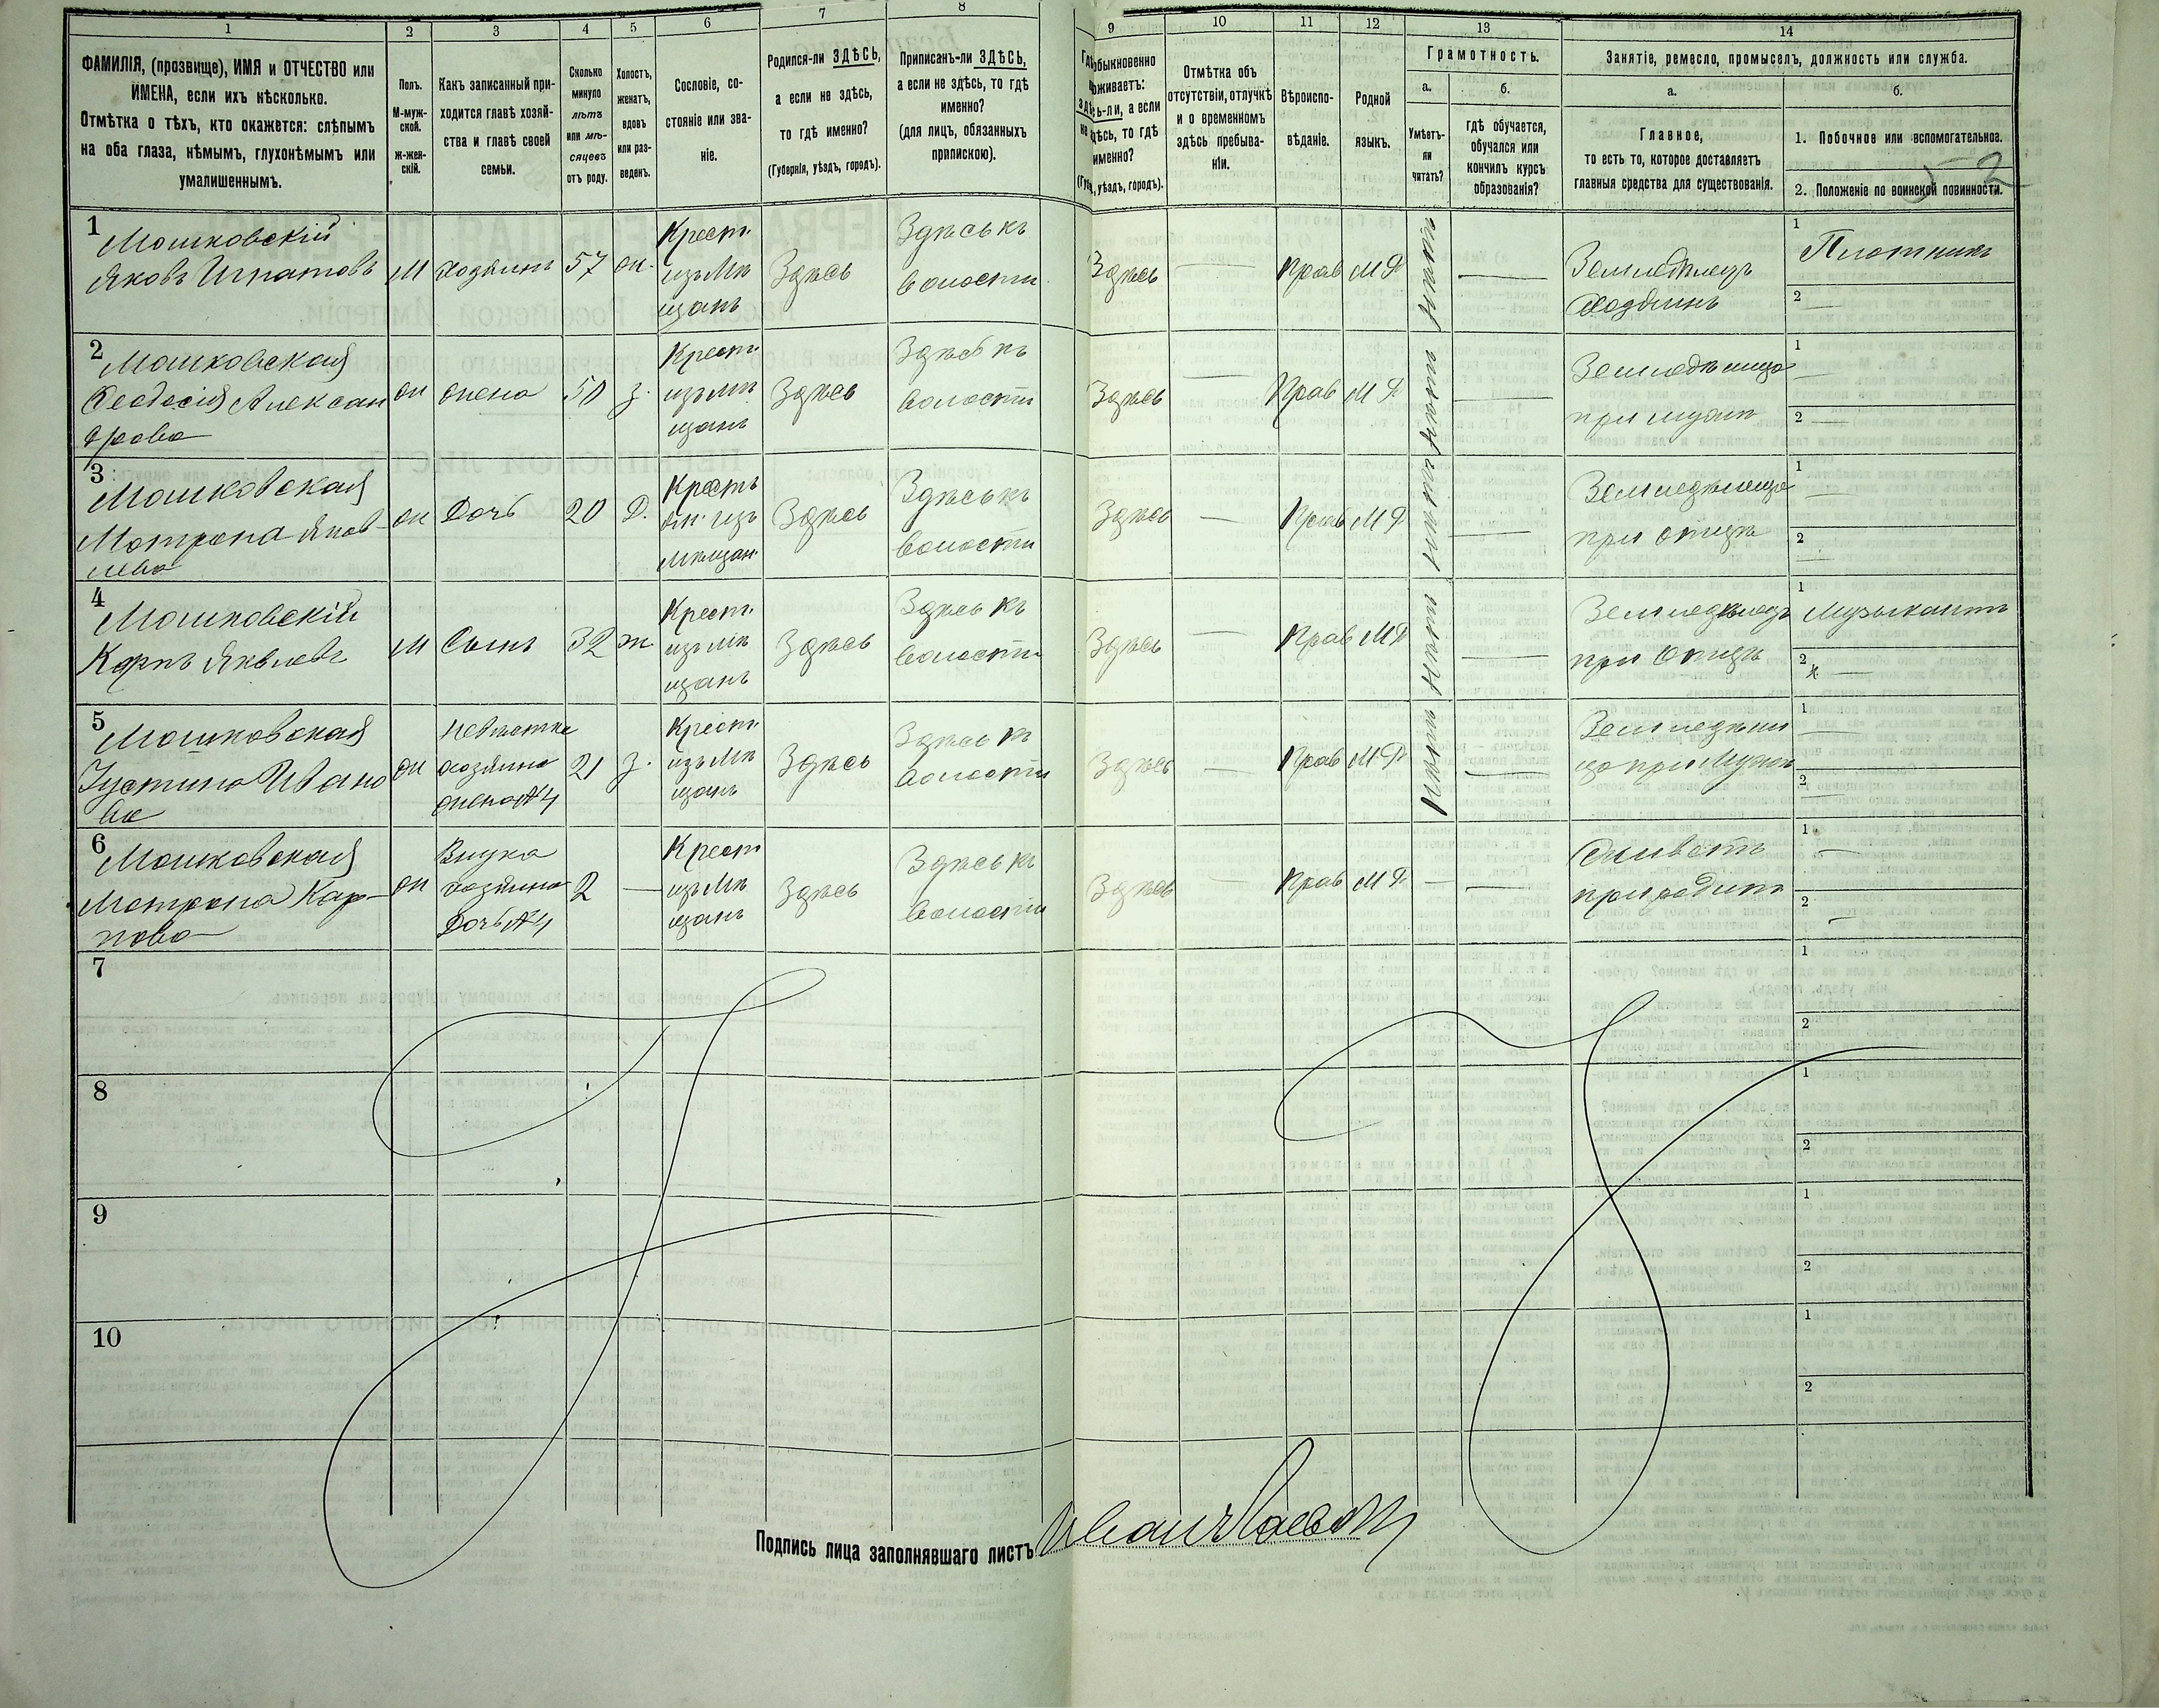 1 2 3 4 5 6 7 8 9 10 11 12 13 14
ФАМИЛІЯ, (прозвище), ИМЯ и ОТЧЕСТВО или
ИМЕНА, если ихъ нѣсколько.
Отмѣтка о тѣхъ, кто окажется: слѣпымъ
на оба глаза, нѣмымъ, глухонѣмымъ или
умалишеннымъ.
Полъ.
М-муж-
ской.
ж-жен-
скій.
Какъ записанный при-
ходится главѣ хозяй-
ства и главѣ своей
семьи.
Сколько
минуло
лѣтъ
или мѣ-
сяцевъ
отъ роду.
Холостъ,
женатъ,
вдовъ
или раз-
веденъ.
Сословіе, со-
стояніе или зва-
ніе.
Родился-ли ЗДѢСЬ,
а если не здѣсь,
то гдѣ именно?
(Губернія, уѣздъ, городъ).
Приписанъ-ли ЗДѢСЬ,
а если не здѣсь, то гдѣ
именно?
(для лицъ, обязанныхъ
припискою).
обыкновенно
а если
то гдѣ
именно?
уѣздъ, городъ).
Отмѣтка объ
отсутствіи, отлучкѣ
и о временномъ
здѣсь пребыва-
ніи.
Вѣроиспо-
вѣданіе.
Родной
языкъ.
Грамотность.
а.
Умѣетъ-
ли
читать?
б.
гдѣ обучается,
обучался или
кончилъ курсъ
образованія?
Занятіе, ремесло, промыселъ, должность или служба.
а.
Главное,
то есть то, которое доставляетъ
главныя средства для существованія.
б.
1. Побочное или вспомогательное.
2. Положеніе по воинской повинности.
1
Мошковскій
Яковъ Игнатовъ
М
хозяинъ
57
ж.
Крест.
изъ Мѣ
щанъ
Здѣсь
Здѣсь къ
волости
Здѣсь
—
Прав
МР
—
Земледѣлецъ
хозяинъ
1
Плотникъ
2
—
2
Мошковская
Ѳеодосія Алексан
дрова
ж
жена
50
З.
Крест
изъ Мѣ
щанъ
Здѣсь
Здѣсь къ
волости
Здѣсь
—
Прав
МР
—
при мужѣ
1
—
2
—
3
Мошковская
Мотрона Яков-
лева
ж
Дочь
20
Д.
Мѣщан
Здѣсь
Здѣсь къ
волости
Здѣсь
—
Прав
МР
—
при отцѣ
1
—
2
—
4
Мошковскій
Карпъ Яковлевъ
М
Сынъ
32
ж
Крест.
изъ Мѣ
щанъ
Здѣсь
Здѣсь къ
волости
Здѣсь
—
Прав
МР
—
Земледѣлецъ
при Отцѣ
1
Музыкантъ
2
—
5
Мошковская
Іустина Ивано
ва
ж
Невѣстка
хозяина
жена №4
21
З.
Крест.
изъ Мѣ
щанъ
Здѣсь
Здѣсь къ
волости
Здѣсь
—
Прав
МР
—
Земледѣли
ца при Мужѣ
1
—
2
—
6
Мошковская
Мотрона Кар-
пова
ж
Внука
хозяина
Дочь №4
2
—
Крест
изъ Мѣ
щанъ
Здѣсь
Здѣсь къ
волости
Здѣсь
—
Прав
МР
—
—
Живетъ
при родит
1
—
2
—
7
1
2
8
1
2
9
1
2
10
1
2
Подпись лица заполнявшаго листъ